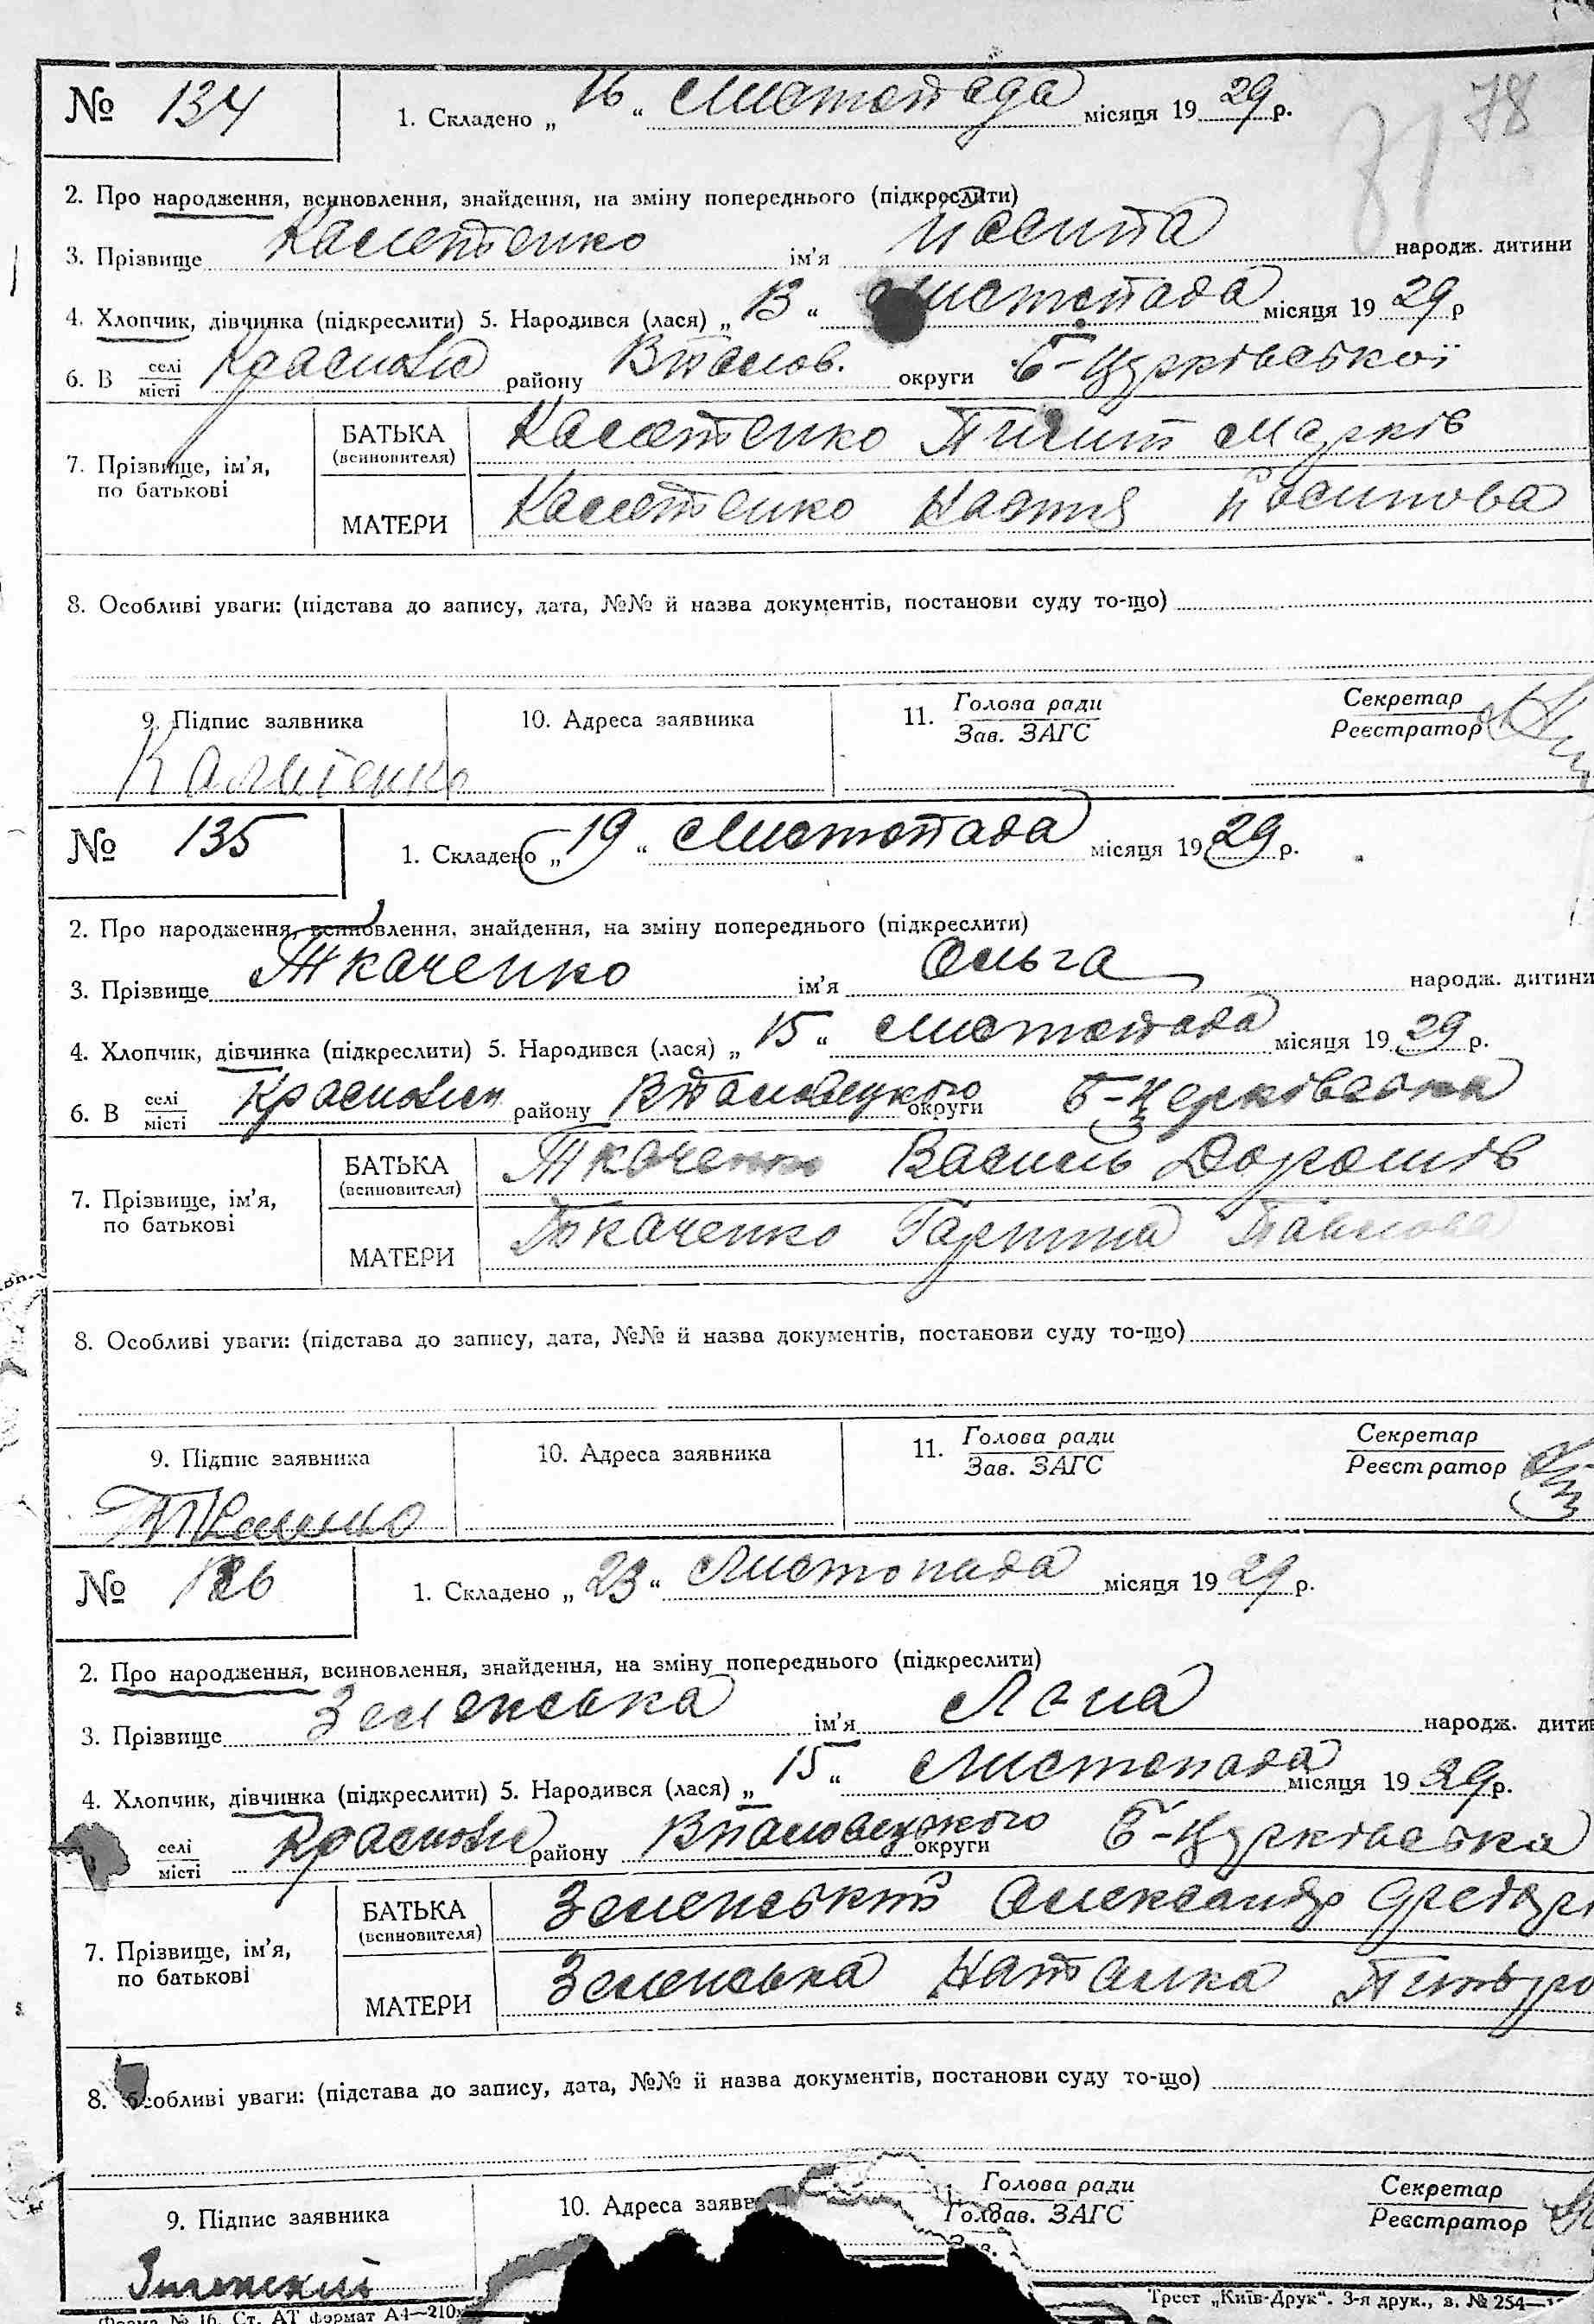 78
31
№ 134
1. Складено „ 16 “ Листопада місяця 19 29 р.
2. Про народження, всиновлення, знайдення, на зміну попереднього (підкреслити)
3. Прізвище Калетенко ім’я Йосипа народж. дитини
4. Хлопчик, дівчинка (підкреслити) 5. Народився (лася) „ 13 “ Листопада місяця 19 29 р
6. В селі/місті району округи Б-Церківської
7. Прізвище, ім’я, по батькові
БАТЬКА (всиновителя) Калетенко Пилип Марків
МАТЕРИ Калетенко Настя Йосипова
8. Особливі уваги: (підстава до запису, дата, №№ й назва документів, постанови суду то-що)
9. Підпис заявника 10. Адреса заявника 11. Голова ради/Зав. ЗАГС Секретар/Реєстратор
№ 135
1. Складено „ 19 “ Листопада місяця 19 29 р.
2. Про народження, всиновлення, знайдення, на зміну попереднього (підкреслити)
3. Прізвище Ткаченко ім’я Ольга народж. дитини
4. Хлопчик, дівчинка (підкреслити) 5. Народився (лася) „ 15 “ Листопада місяця 19 29 р.
6. В селі/місті району округи Б-Церківська
7. Прізвище, ім’я, по батькові
БАТЬКА (всиновителя) Ткаченко Василь Дорошів
МАТЕРИ Ткаченко Гарпина Павлова
8. Особливі уваги: (підстава до запису, дата, №№ й назва документів, постанови суду то-що)
9. Підпис заявника 10. Адреса заявника 11. Голова ради/Зав. ЗАГС Секретар/Реєстратор
№ 136
1. Складено „ 23 “ Листопада місяця 19 29 р.
2. Про народження, всиновлення, знайдення, на зміну попереднього (підкреслити)
3. Прізвище Зеленська ім’я народж. дити
4. Хлопчик, дівчинка (підкреслити) 5. Народився (лася) „ 15 “ Листопада місяця 19 29 р.
селі/місті району округи Б-Церківська
7. Прізвище, ім’я, по батькові
БАТЬКА (всиновителя) Зеленський Олександр
МАТЕРИ Зеленська Наталка
8. Особливі уваги: (підстава до запису, дата, №№ й назва документів, постанови суду то-що)
9. Підпис заявника 10. Адреса заяв Голова ради/Зав. ЗАГС Секретар/Реєстратор
Форма № 16. Ст. АТ формат А4—210 Трест „Київ-Друк“. 3-я друк., з. № 254—